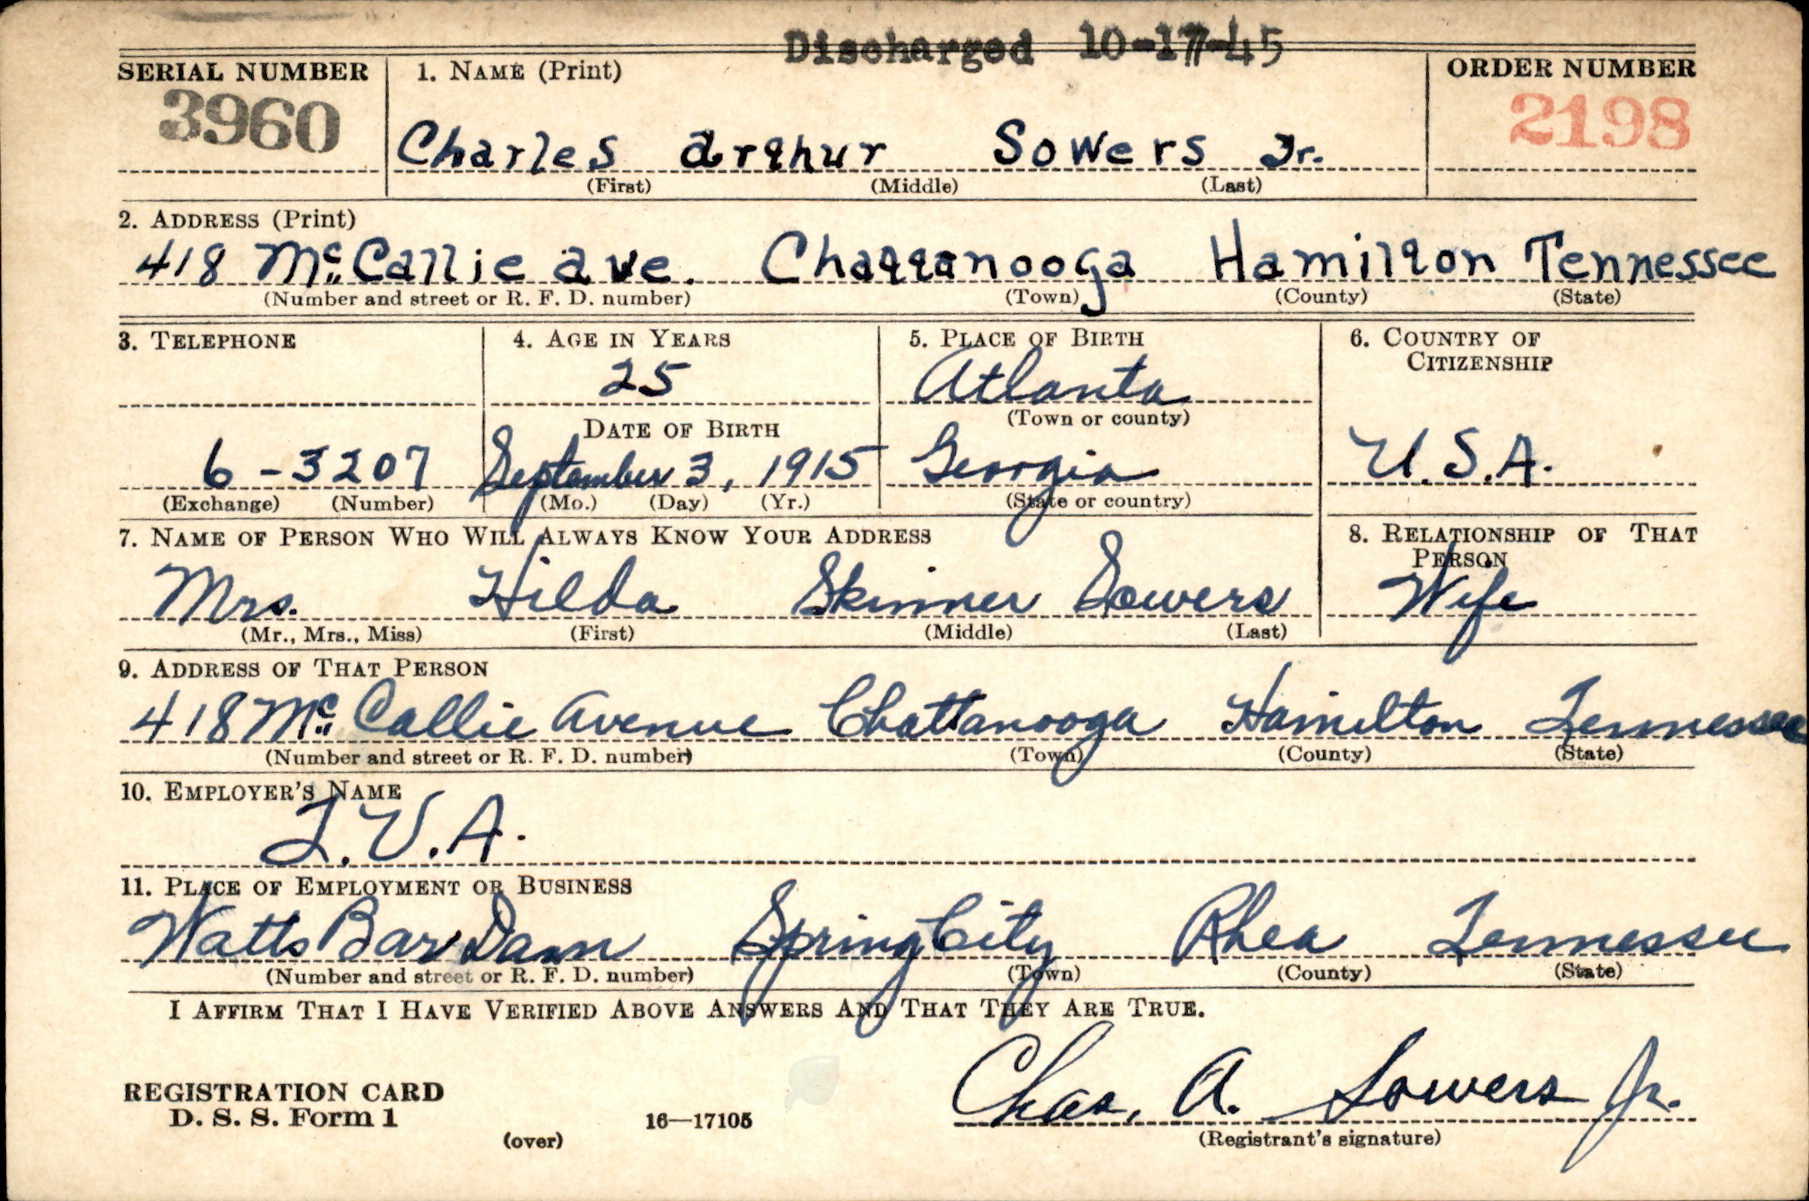 Discharged 10-17-45
SERIAL NUMBER 1. NAME (Print) ORDER NUMBER
3960 Charles Arthur Sowers Jr. 2198
(First) (Middle) (Last)
2. ADDRESS (Print)
418 McCallie Ave. Chattanooga Hamilton Tennessee
(Number and street or R. F. D. number) (Town) (County) (State)
3. TELEPHONE 4. AGE IN YEARS 5. PLACE OF BIRTH 6. COUNTRY OF CITIZENSHIP
25 Atlanta
DATE OF BIRTH (Town or county)
6-3207 September 3, 1915 Georgia U.S.A.
(Exchange) (Number) (Mo.) (Day) (Yr.) (State or country)
7. NAME OF PERSON WHO WILL ALWAYS KNOW YOUR ADDRESS 8. RELATIONSHIP OF THAT PERSON
Mrs. Hilda Skinner Sowers Wife
(Mr., Mrs., Miss) (First) (Middle) (Last)
9. ADDRESS OF THAT PERSON
418 McCallie Avenue Chattanooga Hamilton Tennessee
(Number and street or R. F. D. number) (Town) (County) (State)
10. EMPLOYER'S NAME
T.V.A.
11. PLACE OF EMPLOYMENT OR BUSINESS
Watts Bar Dam Spring City Rhea Tennessee
(Number and street or R. F. D. number) (Town) (County) (State)
I AFFIRM THAT I HAVE VERIFIED ABOVE ANSWERS AND THAT THEY ARE TRUE.
Chas. A. Sowers Jr.
REGISTRATION CARD
D. S. S. Form 1 16—17105
(over) (Registrant's signature)